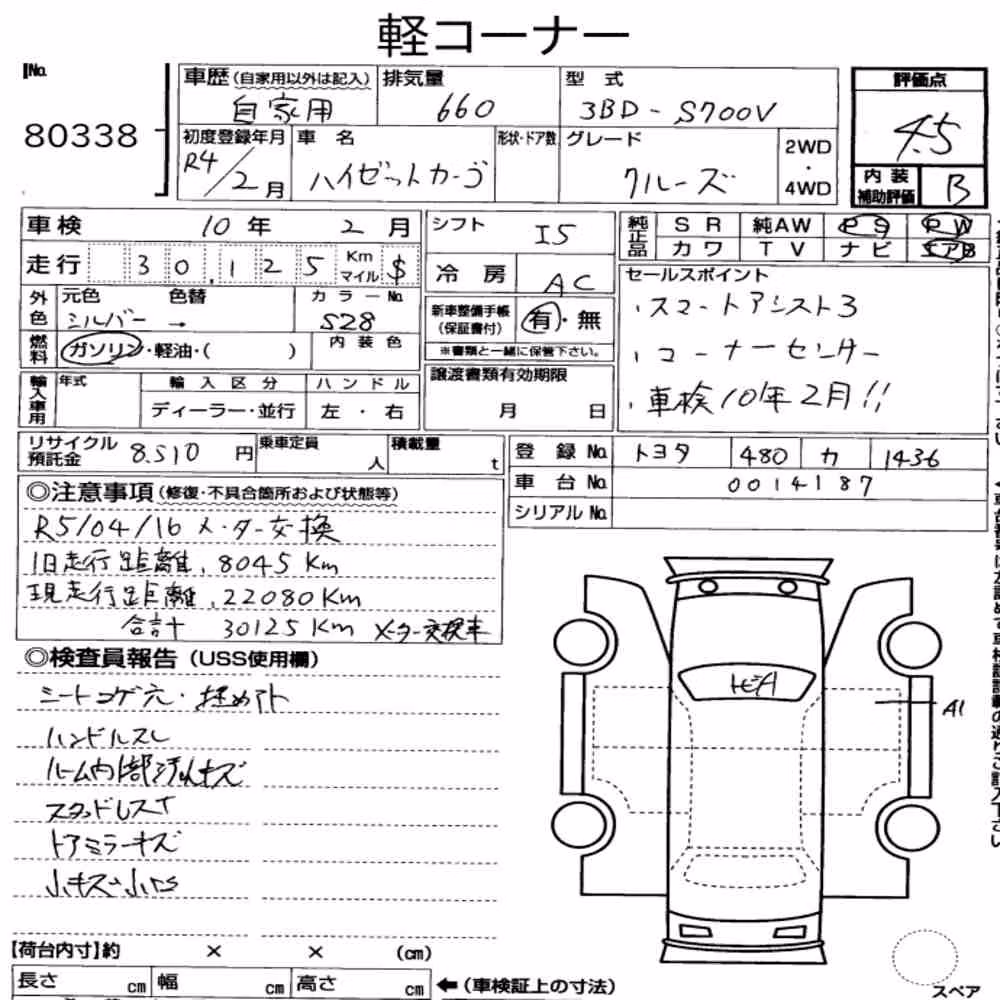 軽コーナー
No. 80338
車歴(自家用以外は記入) 自家用
排気量 660
型 式 3BD-S700V
評価点 4.5
初度登録年月 R4/2月
車 名 ハイゼットカーゴ
形状・ドア数
グレード クルーズ
2WD・4WD
内装補助評価 B
車検 10年 2月
シフト I5
純正品 SR 純AW PS PW
カワ TV ナビ エアB
走行 30,125 Km マイル $
冷房 AC
セールスポイント
・スマートアシスト3
・コーナーセンサー
・車検10年2月!!
外色 元色 シルバー → 色替 カラーNo. S28
新車整備手帳(保証書付) 有・無
※書類と一緒に保管下さい。
燃料 ガソリン・軽油・( ) 内装色
輸入車用 年式 輸入区分 ディーラー・並行 ハンドル 左・右
譲渡書類有効期限 月 日
リサイクル預託金 8,510円
乗車定員 人
積載量 t
登録No. トヨタ 480 カ 1436
車台No. 0014187
シリアルNo.
◎注意事項(修復・不具合箇所および状態等)
R5/04/16 メーター交換
旧走行距離,8045Km
現走行距離,22080Km
合計 30125Km メーター交換車
◎検査員報告(USS使用欄)
シートコゲ穴・埋めアト
ハンドルスレ
ルーム内部汚れキズ
ドアミラーキズ
小キズ
A1
【荷台内寸】約 × × (cm)
長さ cm 幅 cm 高さ cm ←(車検証上の寸法)
スペア